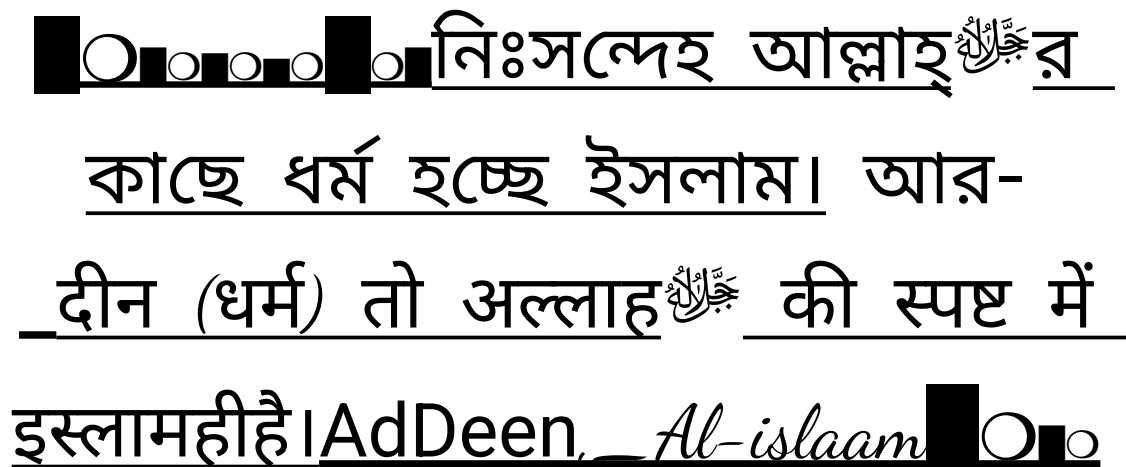 নিঃসন্দেহ আল্লাহ্ﷻর
কাছে ধর্ম হচ্ছে ইসলাম। আর-
_दीन (धर्म) तो अल्लाहﷻ की स्पष्ट में
इस्लामहीहै।AdDeen,_Al-islaam